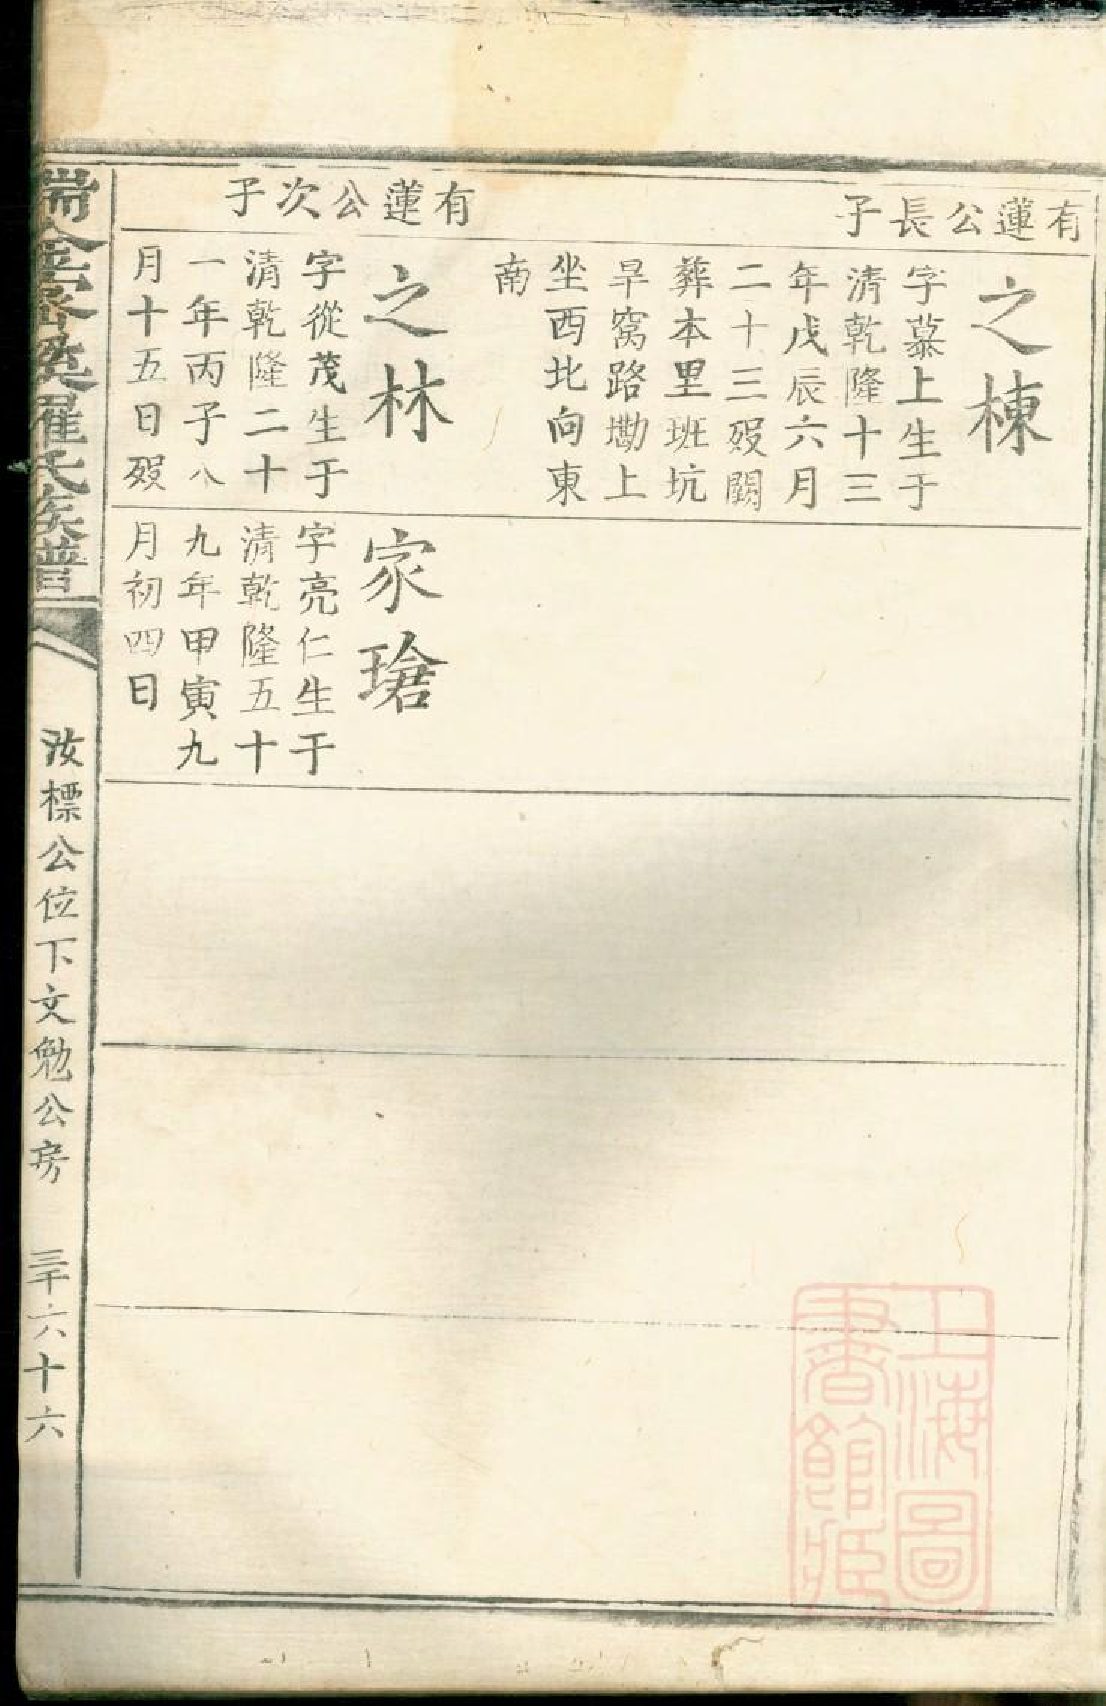 有蓮公長子
之棟
字慕上生于
清乾隆十三
年戊辰六月
二十三殁闕
葬本里班坑
旱窩路墈上
坐西北向東
南
有蓮公次子
之林
字從茂生于
清乾隆二十
一年丙子八
月十五日殁
家瑲
字亮仁生于
清乾隆五十
九年甲寅九
月初四日
羅氏族譜
汝標公位下文勉公房
六十六
上海圖
書館藏